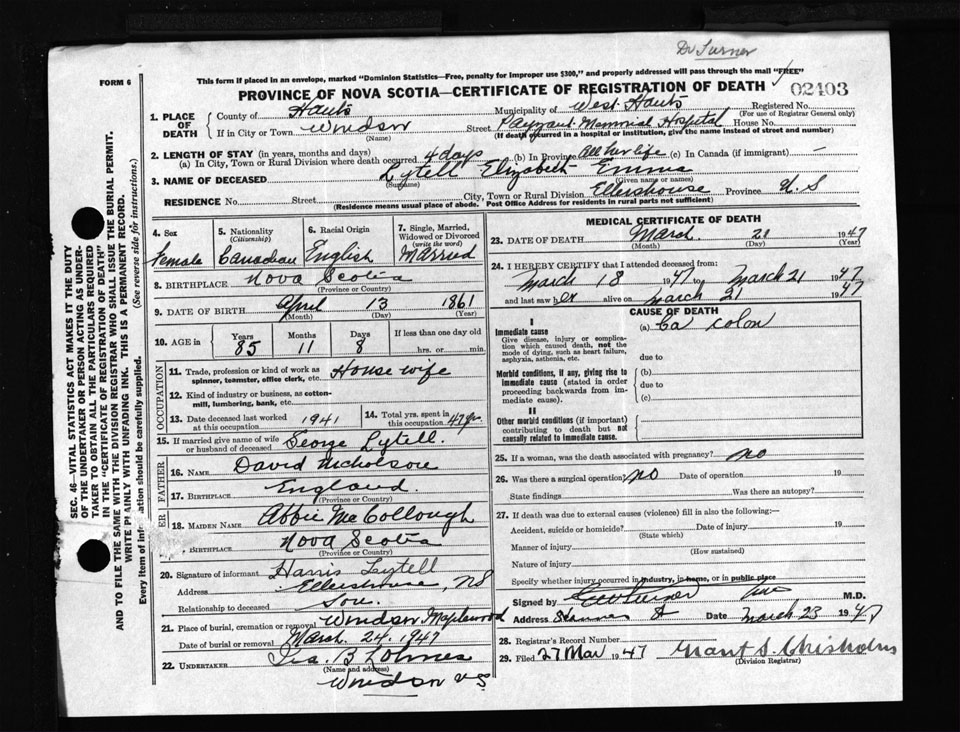 Dr Turner
FORM 6
This form if placed in an envelope, marked "Dominion Statistics—Free, penalty for improper use $300," and properly addressed will pass through the mail "FREE"
PROVINCE OF NOVA SCOTIA—CERTIFICATE OF REGISTRATION OF DEATH
02403
1. PLACE OF DEATH
County of Hants Municipality of West Hants Registered No.
(For use of Registrar General only)
If in City or Town Windsor Street Payzant Memorial Hospital House No.
(Name) (If death occurred in a hospital or institution, give the name instead of street and number)
2. LENGTH OF STAY (in years, months and days)
(a) In City, Town or Rural Division where death occurred 4 days (b) In Province All her life (c) In Canada (if immigrant) —
3. NAME OF DECEASED Lytell Elizabeth
(Surname) (Given name or names)
RESIDENCE No. Street City, Town or Rural Division Ellershouse Province N S
(Residence means usual place of abode. Post Office Address for residents in rural parts not sufficient)
4. Sex
Female
5. Nationality
(Citizenship)
Canadian
6. Racial Origin
English
7. Single, Married, Widowed or Divorced
(write the word)
Married
8. BIRTHPLACE Nova Scotia
(Province or Country)
9. DATE OF BIRTH April 13 1861
(Month) (Day) (Year)
10. AGE in
Years Months Days If less than one day old
85 11 8 hrs. or min.
OCCUPATION
11. Trade, profession or kind of work as spinner, teamster, office clerk, etc. House wife
12. Kind of industry or business, as cotton-mill, lumbering, bank, etc.
13. Date deceased last worked at this occupation 1941
14. Total yrs. spent in this occupation 47 yrs.
15. If married give name of wife or husband of deceased George Lytell.
FATHER
16. NAME David Nicholson
17. BIRTHPLACE England.
(Province or Country)
18. MAIDEN NAME Abbie McCollough
BIRTHPLACE Nova Scotia
(Province or Country)
20. Signature of informant Harris Lytell
Address Ellershouse, NS
Relationship to deceased Son.
21. Place of burial, cremation or removal Windsor Maplewood
Date of burial or removal March. 24. 1947
22. UNDERTAKER Ira. B Lohnes
(Name and address)
Windsor N.S
MEDICAL CERTIFICATE OF DEATH
23. DATE OF DEATH March. 21 1947
(Month) (Day) (Year)
24. I HEREBY CERTIFY that I attended deceased from:
March 18 1947 to March 21 1947
and last saw her alive on March 21 1947
CAUSE OF DEATH
I
Immediate cause
Give disease, injury or complication which caused death, not the mode of dying, such as heart failure, asphyxia, asthenia, etc.
(a) Ca colon
due to
Morbid conditions, if any, giving rise to immediate cause (stated in order proceeding backwards from immediate cause).
(b)
due to
(c)
II
Other morbid conditions (if important) contributing to death but not causally related to immediate cause.
25. If a woman, was the death associated with pregnancy? no
26. Was there a surgical operation? no Date of operation 19
State findings Was there an autopsy?
27. If death was due to external causes (violence) fill in also the following:—
Accident, suicide or homicide? Date of injury 19
(State which)
Manner of injury
(How sustained)
Nature of injury
Specify whether injury occurred in industry, in home, or in public place
Signed by Turner M.D.
Address Date March 23 1947
28. Registrar's Record Number
29. Filed 27 Mar 1947 Grant S. Chisholm
(Division Registrar)
SEC. 46—VITAL STATISTICS ACT MAKES IT THE DUTY
OF THE UNDERTAKER OR PERSON ACTING AS UNDERTAKER TO OBTAIN ALL THE PARTICULARS REQUIRED
IN THE "CERTIFICATE OF REGISTRATION OF DEATH"
AND TO FILE THE SAME WITH THE DIVISION REGISTRAR WHO SHALL ISSUE THE BURIAL PERMIT.
WRITE PLAINLY WITH UNFADING INK. THIS IS A PERMANENT RECORD.
Every item of information should be carefully supplied. (See reverse side for instructions.)